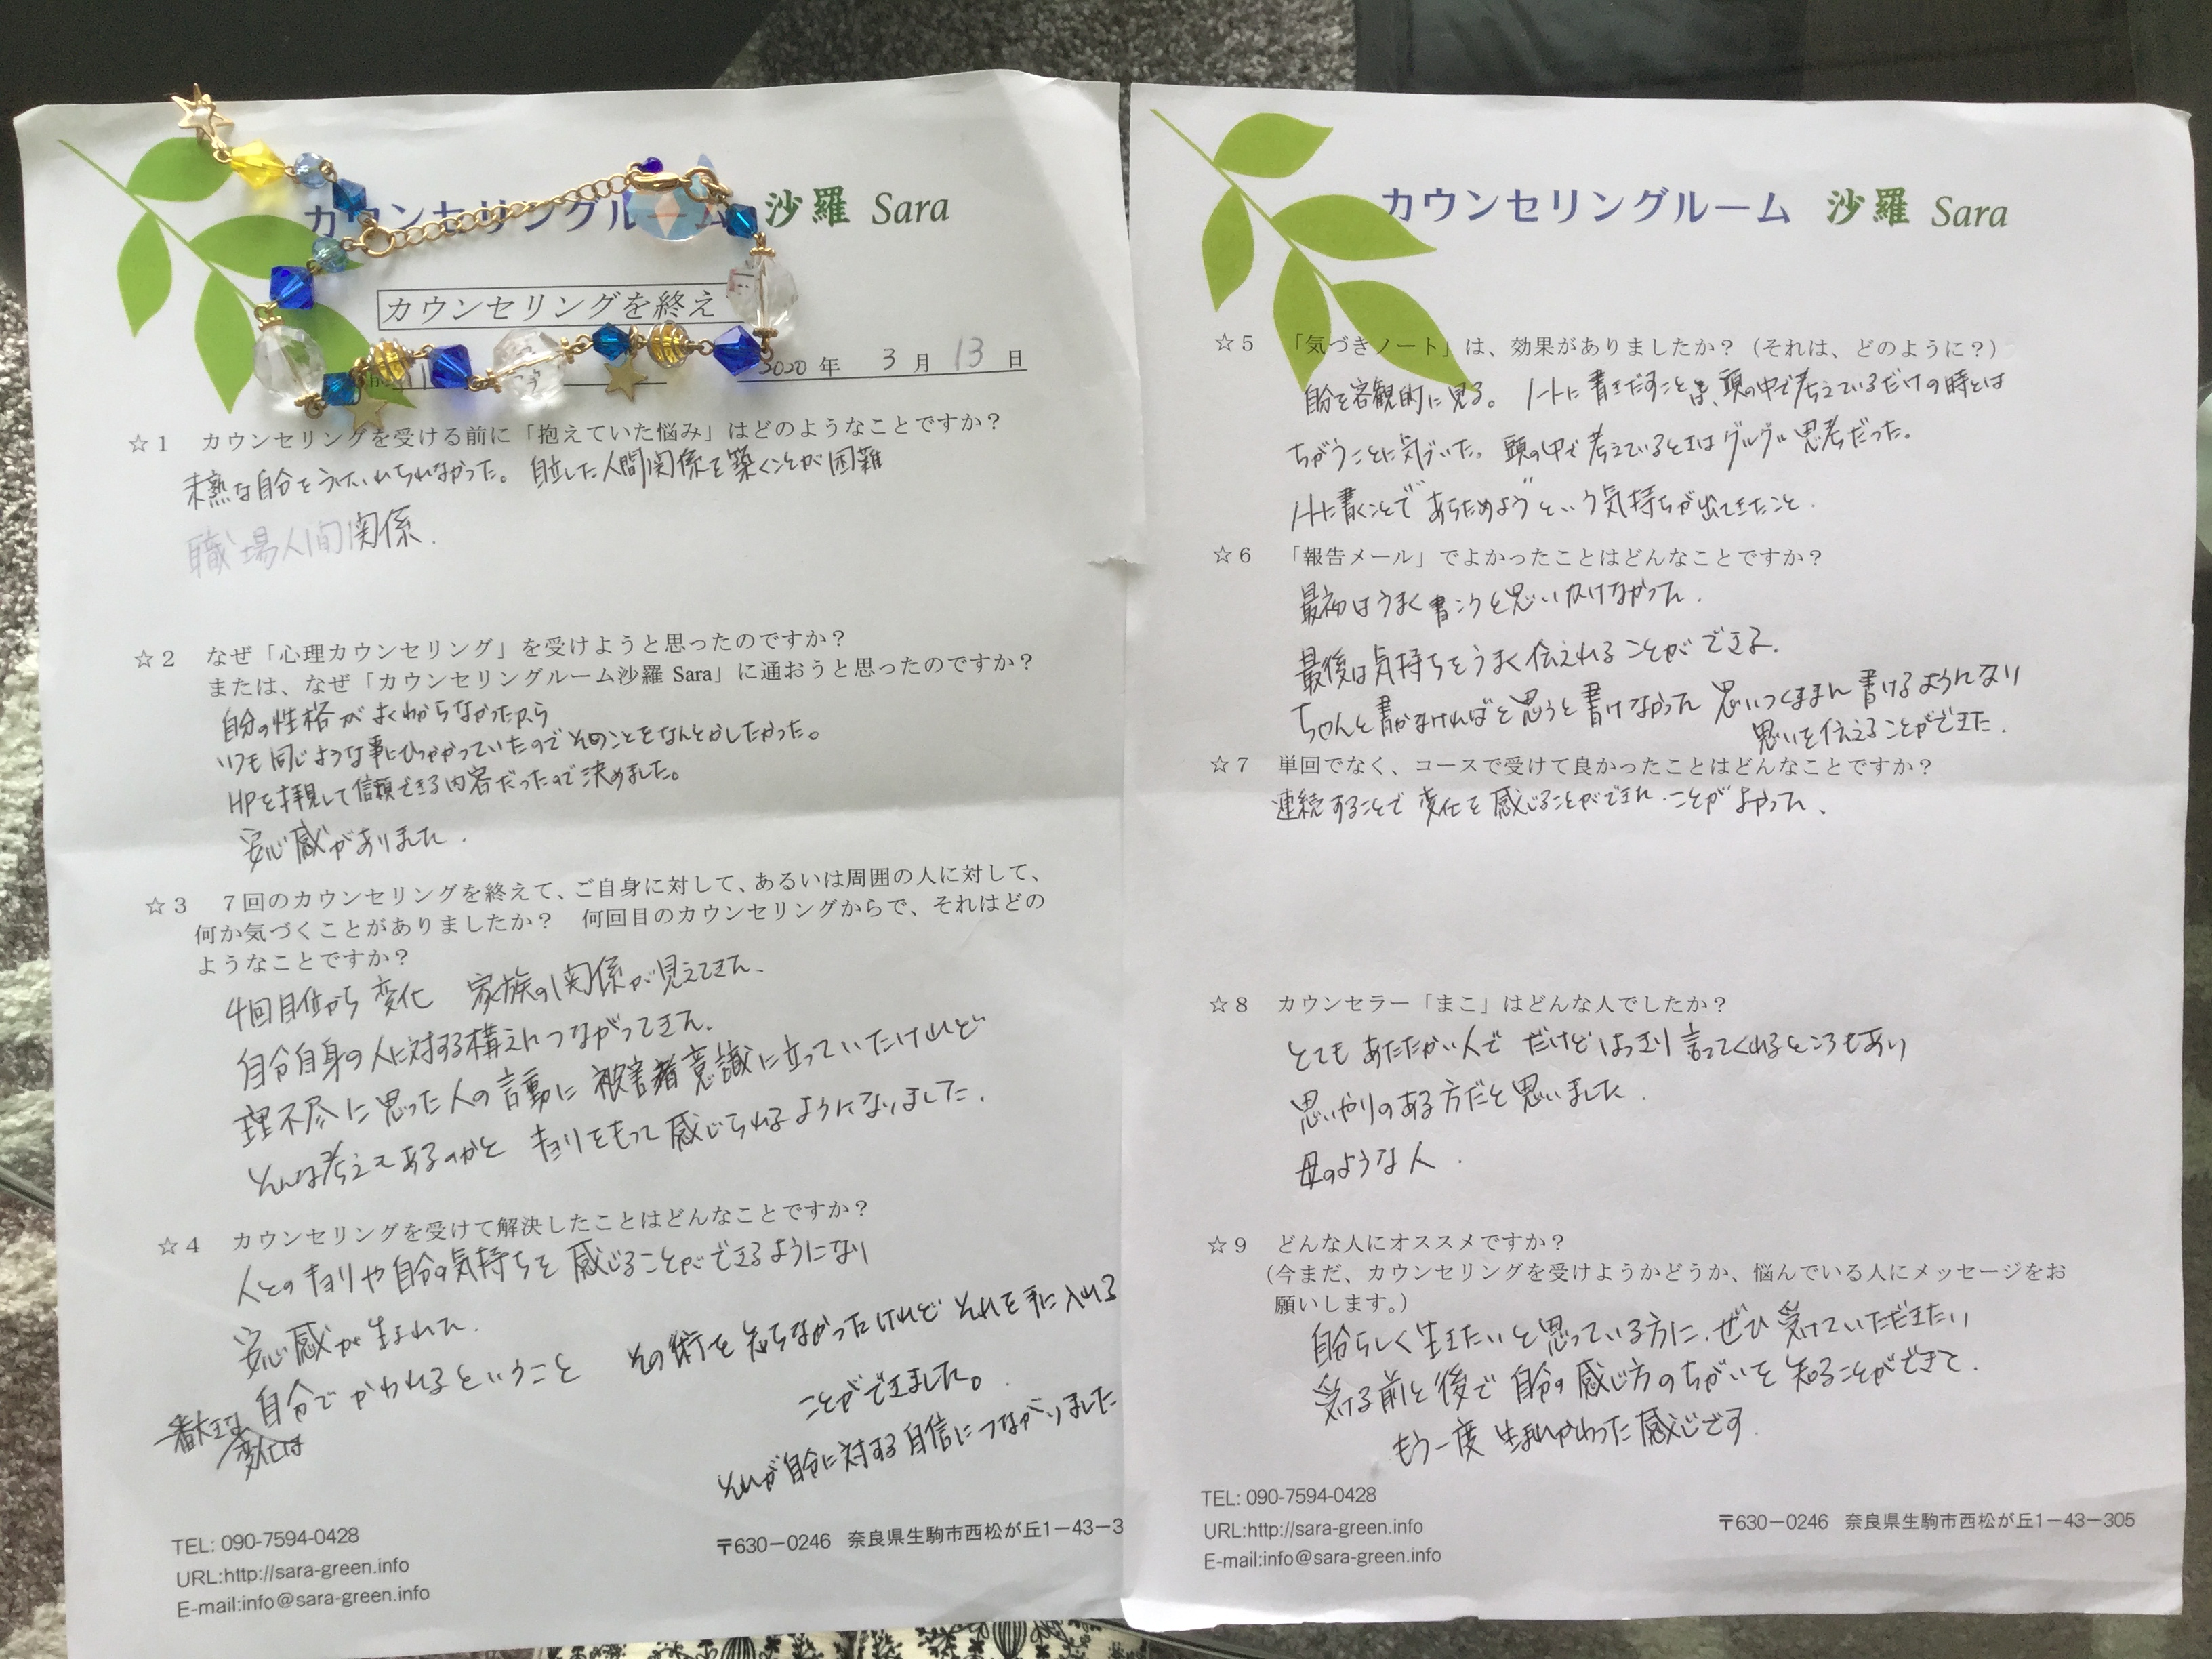 カウンセリングルーム 沙羅 Sara
カウンセリングを終え
2020 年 3 月 13 日
☆1 カウンセリングを受ける前に「抱えていた悩み」はどのようなことですか？
未熟な自分をうけいれられなかった。自立した人間関係を築くことが困難
職場人間関係．
☆2 なぜ「心理カウンセリング」を受けようと思ったのですか？
または、なぜ「カウンセリングルーム沙羅 Sara」に通おうと思ったのですか？
自分の性格がよくわからなかったから
いつも同じような事にひっかかっていたのでそのことをなんとかしたかった。
HPを拝見して信頼できる内容だったので決めました。
安心感がありました．
☆3 7回のカウンセリングを終えて、ご自身に対して、あるいは周囲の人に対して、
何か気づくことがありましたか？ 何回目のカウンセリングからで、それはどの
ようなことですか？
4回目位から変化 家族の関係が見えてきた、
自分自身の人に対する構えにつながってきた．
理不尽に思った人の言動に被害者意識に立っていたけれど
そんな考えもあるのかと キョリをもって感じられるようになりました．
☆4 カウンセリングを受けて解決したことはどんなことですか？
人とのキョリや自分の気持ちを感じることができるようになり
安心感が生まれた．
一番大きな変化は 自分でかわれるということ その術を知らなかったけれどそれを手に入れる
ことができました。
それが自分に対する自信につながりました
TEL: 090-7594-0428
URL:http://sara-green.info
E-mail:info@sara-green.info
〒630－0246 奈良県生駒市西松が丘1－43－3
カウンセリングルーム 沙羅 Sara
☆5 「気づきノート」は、効果がありましたか？（それは、どのように？）
自分を客観的に見る。ノートに書きだすことは、頭の中で考えているだけの時とは
ちがうことに気づいた。頭の中で考えているときはグルグル思考だった。
ノートに書くことで"あらためよう"という気持ちが出てきたこと．
☆6 「報告メール」でよかったことはどんなことですか？
最初はうまく書こうと思いかけなかった．
最後は気持ちをうまく伝えれることができた．
ちゃんと書かなければと思うと書けなかった 思いつくままに書けるようになり
思いを伝えることができた．
☆7 単回でなく、コースで受けて良かったことはどんなことですか？
連続することで変化を感じることができた．ことがよかった、
☆8 カウンセラー「まこ」はどんな人でしたか？
とてもあたたかい人で だけどはっきり言ってくれるところもあり
思いやりのある方だと思いました．
母のような人．
☆9 どんな人にオススメですか？
（今まだ、カウンセリングを受けようかどうか、悩んでいる人にメッセージをお
願いします。）
自分らしく生きたいと思っている方に、ぜひ受けていただきたい
受ける前と後で自分の感じ方のちがいを知ることができて．
もう一度生まれかわった感じです．
TEL: 090-7594-0428
URL:http://sara-green.info
E-mail:info@sara-green.info
〒630－0246 奈良県生駒市西松が丘1－43－305